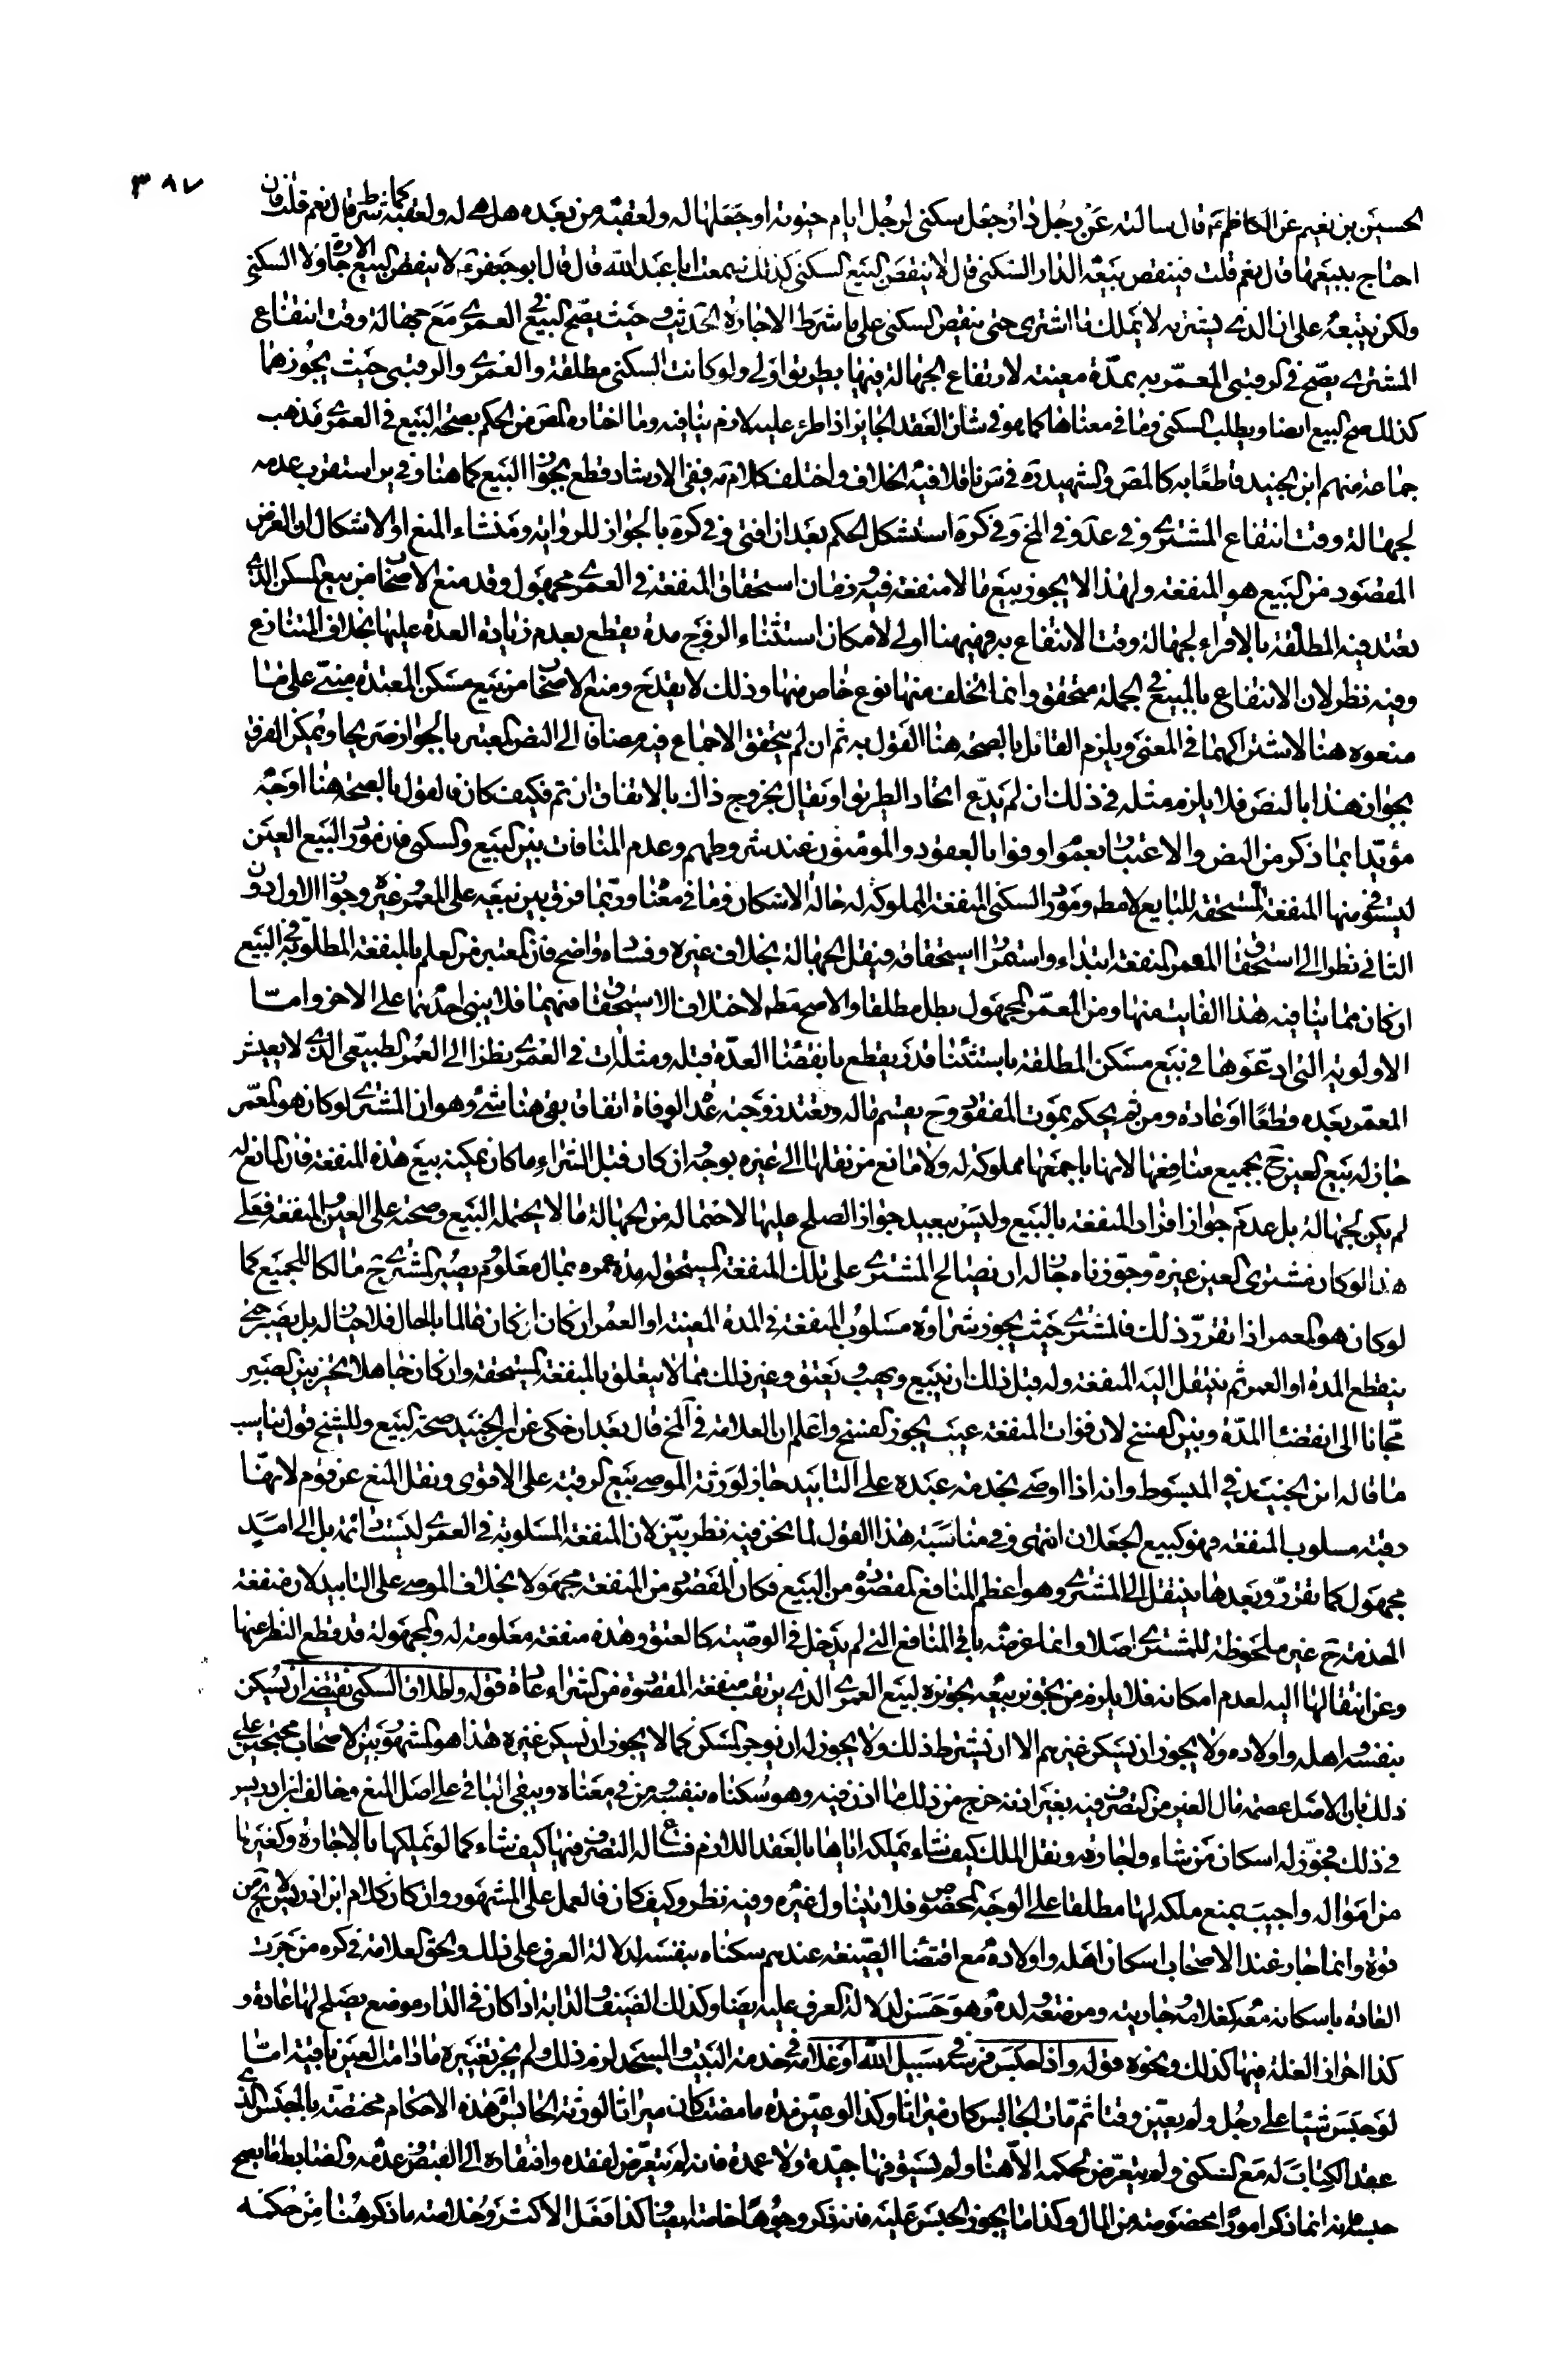 ٣٨٧
الحسين بن نعيم عن الكاظم ع قال سالته عن رجل دار جعل سكنى لرجل ايام حيوته او جعلها له ولعقبه من بعده هل هي له ولعقبه كما شرط قال نعم قلت فان
احتاج يبيعها قال نعم قلت فينقض بيعه الدار السكنى قال لا ينقض البيع السكنى كذلك سمعت ابا عبد الله قال قال ابو جعفر ع لا ينقض البيع الاجارة ولا السكنى
ولكن يبيعه على ان الذي يشتريه لا يملك ما اشترى حتى ينقضي السكنى على ما شرط الاجارة الحديث وحيث يصح البيع في العمرى مع جهالة وقت انتفاع
المشتري يصح في الرقبى المعمر به بمدة معينة لارتفاع الجهالة فيها بطريق اولى ولو كانت السكنى مطلقة والعمرى والرقبى حيث يجوزهما
كذلك صح البيع ايضا ويبطل السكنى وما في معناها كما هو في شان العقد الجايز اذا طرء عليه لازم ينافيه وما اختاره المص من الحكم بصحة البيع في العمرى مذهب
جماعة منهم ابن الجنيد قاطعا به كالمص والشهيد ره في س ناقلا فيه الخلاف واختلف كلام مه ففي الارشاد قطع بجواز البيع كما هنا وفي ير استقرب عدمه
لجهالة وقت انتفاع المشتري وفي عد وفي المخ وفي كره استشكل الحكم بعد ان افتى في كره بالجواز للرواية ومنشاء المنع او الاشكال ان الغرض
المقصود من البيع هو المنفعة ولهذا لا يجوز بيع ما لا منفعة فيه وزمان استحقاق المنفعة في العمرى مجهول وقد منع الاصحاب من بيع المسكن الذي
تعتد فيه المطلقة بالاقراء لجهالة وقت الانتفاع به فهيهنا اولى لامكان استثناء الزوج مدة يقطع بعدم زيادة العدة عليها بخلاف المتنازع
وفيه نظر لان الانتفاع بالمبيع في الجملة متحقق وانما تخلف منها نوع خاص منها وذلك لا يقدح ومنع الاصحاب من بيع مسكن المعتدة مبني على ما
منعوه هنا لاشتراكهما في المعنى ويلزم القائل بالصحة هنا القول به ثم ان لم يتحقق الاجماع فيه مضافا الى النص المعتبر بالجواز صريحا ويمكن الفرق
بجواز هذا بالنص فلا يلزم مثله في ذلك ان لم يدع اتحاد الطريق او يقال بخروج ذاك بالاتفاق ان تم فكيف كان فالقول بالصحة هنا اوجه
مؤيدا بما ذكر من النص والاعتبار بعموم اوفوا بالعقود والمومنون عند شروطهم وعدم المنافات بين البيع والسكنى فان مورد البيع العين
ليستوفى منها المنفعة المستحقة للبايع لا مط ومورد السكنى المنفعة المملوكة له حالة الاسكان وما في معناه وربما فرق بين بيعه على المعمر وغيره وجوز الاول دون
الثاني نظرا الى استحقاق المعمر المنفعة ابتداء واستمرار استحقاقه فيقل الجهالة بخلاف غيره وفساده واضح فان المعتبر من العلم بالمنفعة المطلوبة في البيع
ان كان مما ينافيه هذا الفايت منها ومن المعمر المجهول بطل مطلقا والا صح مط لاختلاف الاستحقاق فيهما فلا يبنى احدهما على الاخر واما
الاولوية التي ادعوها في بيع مسكن المطلقة باستثناء قدر يقطع بانقضاء العدة قبله ومثله ات في العمرى نظرا الى العمر الطبيعي الذي لا يعيش
المعمر بعده قطعا او عادة ومن ثم يحكم بموت المفقود وح يقسم ماله وتعتد زوجته عدة الوفاة اتفاقا بقي هنا شئ وهو ان المشتري لو كان هو المعمر
جاز له بيع العين ح بجميع منافعها لانها باجمعها مملوكة له ولا مانع من نقلها الى غيره بوجه ان كان قبل الشراء ما كان يمكنه بيع هذه المنفعة فان المانع له
لم يكن الجهالة بل عدم جواز افراد المنفعة بالبيع وليس ببعيد جواز الصلح عليها لاحتماله من الجهالة ما لا يحتمله البيع وصحته على العين والمنفعة فعلى
هذا لو كان مشتري العين غيره وجوزناه جاز له ان يصالح المشتري على تلك المنفعة المستحقة له مدة عمره بمال معلوم يصير المشتري ح مالكا للجميع كما
لو كان هو المعمر اذا تقرر ذلك فالمشتري حيث يجوز شراؤه مسلوب المنفعة في المدة المعينة او العمر ان كان عالما بالحال فلا خيار له بل يصبر حتى
ينقطع المدة او العمر ثم ينتقل اليه المنفعة وله قبل ذلك ان يبيع ويهب ويعتق وغير ذلك مما لا يتعلق بالمنفعة المستحقة وان كان جاهلا تخير بين الصبر
مجانا الى انقضاء المدة وبين الفسخ لان فوات المنفعة عيب يجوز الفسخ واعلم ان العلامة في المخ قال بعد ان حكى عن ابن الجنيد صحة البيع وللشيخ قول يناسب
ما قاله ابن الجنيد في المبسوط وانه اذا اوصى بخدمة عبده على التابيد جاز لورثة الموصي بيع الرقبة على الاقوى ونقل المنع عن قوم لانها
رقبة مسلوب المنفعة فهو كبيع الجعلان انتهى وفي مناسبة هذا القول لما نحن فيه نظر بين لان المنفعة المسلوبة في العمرى ليست دائمة بل الى امد
مجهول كما تقرر وبعدها ينتقل الى المشتري وهو اعظم المنافع المقصودة من البيع فكان المقصود من المنفعة مجهولا بخلاف الموصى على التابيد لان منفعة
الخدمة ح غير ملحوظة للمشتري اصلا وانما غرضه باقي المنافع التي لم يدخل في الوصية كالعتق وهذه منفعة معلومة له والمجهولة قد قطع النظر عنها
وعن انتقالها اليه لعدم امكانه فلا يلزم من تجويز بيعه تجويزه لبيع العمرى الذي يرتقب منفعة المقصودة من الشراء عادة قوله واطلاق السكنى يقتضي ان يسكن
بنفسه واهله واولاده ولا يجوز ان يسكن غيرهم الا ان يشترط ذلك ولا يجوز له ان يوجر المسكن كما لا يجوز ان يسكن غيره هذا هو المشهور بين الاصحاب محتجين على
ذلك بان الاصل عصمة مال الغير من التصرف فيه بغير اذنه خرج من ذلك ما اذن فيه وهو سكناه بنفسه ومن في معناه ويبقى الباقي على اصل المنع وخالف ابن ادريس
في ذلك فجوز له اسكان من شاء واجارته ونقل الملك كيف شاء بتملكه اياها بالعقد اللازم فساغ له التصرف فيها كيف شاء كما لو تملكها بالاجارة وكغيرها
من امواله واجيب بمنع ملكه لها مطلقا على الوجه المخصوص فلا يتناول غيره وفيه نظر وكيف كان فالعمل على المشهور وان كان كلام ابن ادريس لا يخ من
قوة وانما جاز عند الاصحاب اسكان اهله واولاده مع اقتضاء الصيغة عندهم سكناه بنفسه لدلالة العرف على ذلك والحق العلامة في كره من جرت
العادة باسكانه معه كغلامه وجاريته ومرضعة ولده وهو حسن لدلالة العرف عليه ايضا وكذلك الضيف والدابة اذا كان في الدار موضع يصلح لها عادة و
كذا احراز الغلة فيها كذلك ونحوه قوله واذا حبس فرسه في سبيل الله او غلامه في خدمة البيت والمسجد لزم ذلك ولم يجز تغييره ما دامت العين باقية اما
لو حبس شيئا على رجل ولم يعين وقتا ثم مات الحابس كان ميراثا وكذا لو عين مدة ما مضت كان ميراثا لورثة الحابس هذه الاحكام مختصة بالحبس الذي
عقد الكتاب له مع السكنى ولم يتعرض لحكمه الا هنا ولم يستوف فيها جيدة ولا عمدة فانه لم يتعرض لعقده وافتقاره الى القبض وعدمه والضابط ما يصح
حبسه فانه انما ذكر امورا مخصومته من المال وكذا ما يجوز الحبس عليه فانه ذكر وجوها خاصة ايضا كذا فعل الاكثر وخلاصة ما ذكر هنا من حكمه